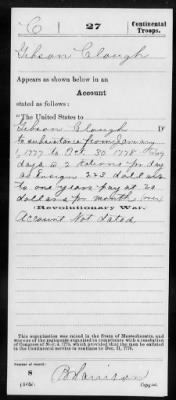 C | 27 | Continental Troops.
Gibson Clough
Appears as shown below in an
Account
stated as follows:
"The United States to
Gibson Clough Dr
to subsistance from January
1, 1777 to Oct. 30 1778
days is 2 rations per day
as Ensign 223 dollars
to one years pay at 20
dollars per month
Revolutionary War.
Account Not dated.
This organization was raised in the State of Massachusetts, and
was one of the regiments organized in conformity with a resolution
of Congress of Nov. 4, 1775, which provided that the men be enlisted
in the Continental service to continue to Dec. 31, 1776.
Number of roll:
8
Copyist.